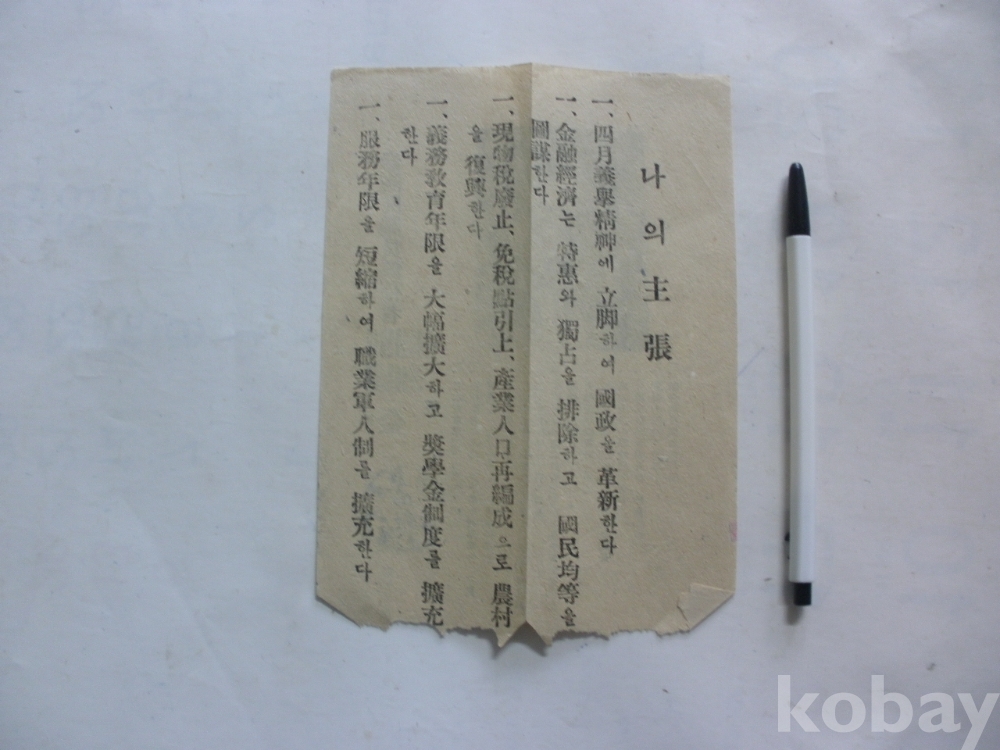 나의 主張
一、四月義擧精神에 立脚하여 國政을 革新한다
一、金融經濟는 特惠와 獨占을 排除하고 國民均等을
圖謀한다
一、現物稅廢止、免稅點引上、產業人口再編成으로 農村
을 復興한다
一、義務教育年限을 大幅擴大하고 奬學金制度를 擴充
한다
一、服務年限을 短縮하여 職業軍人制를 擴充한다
kobay